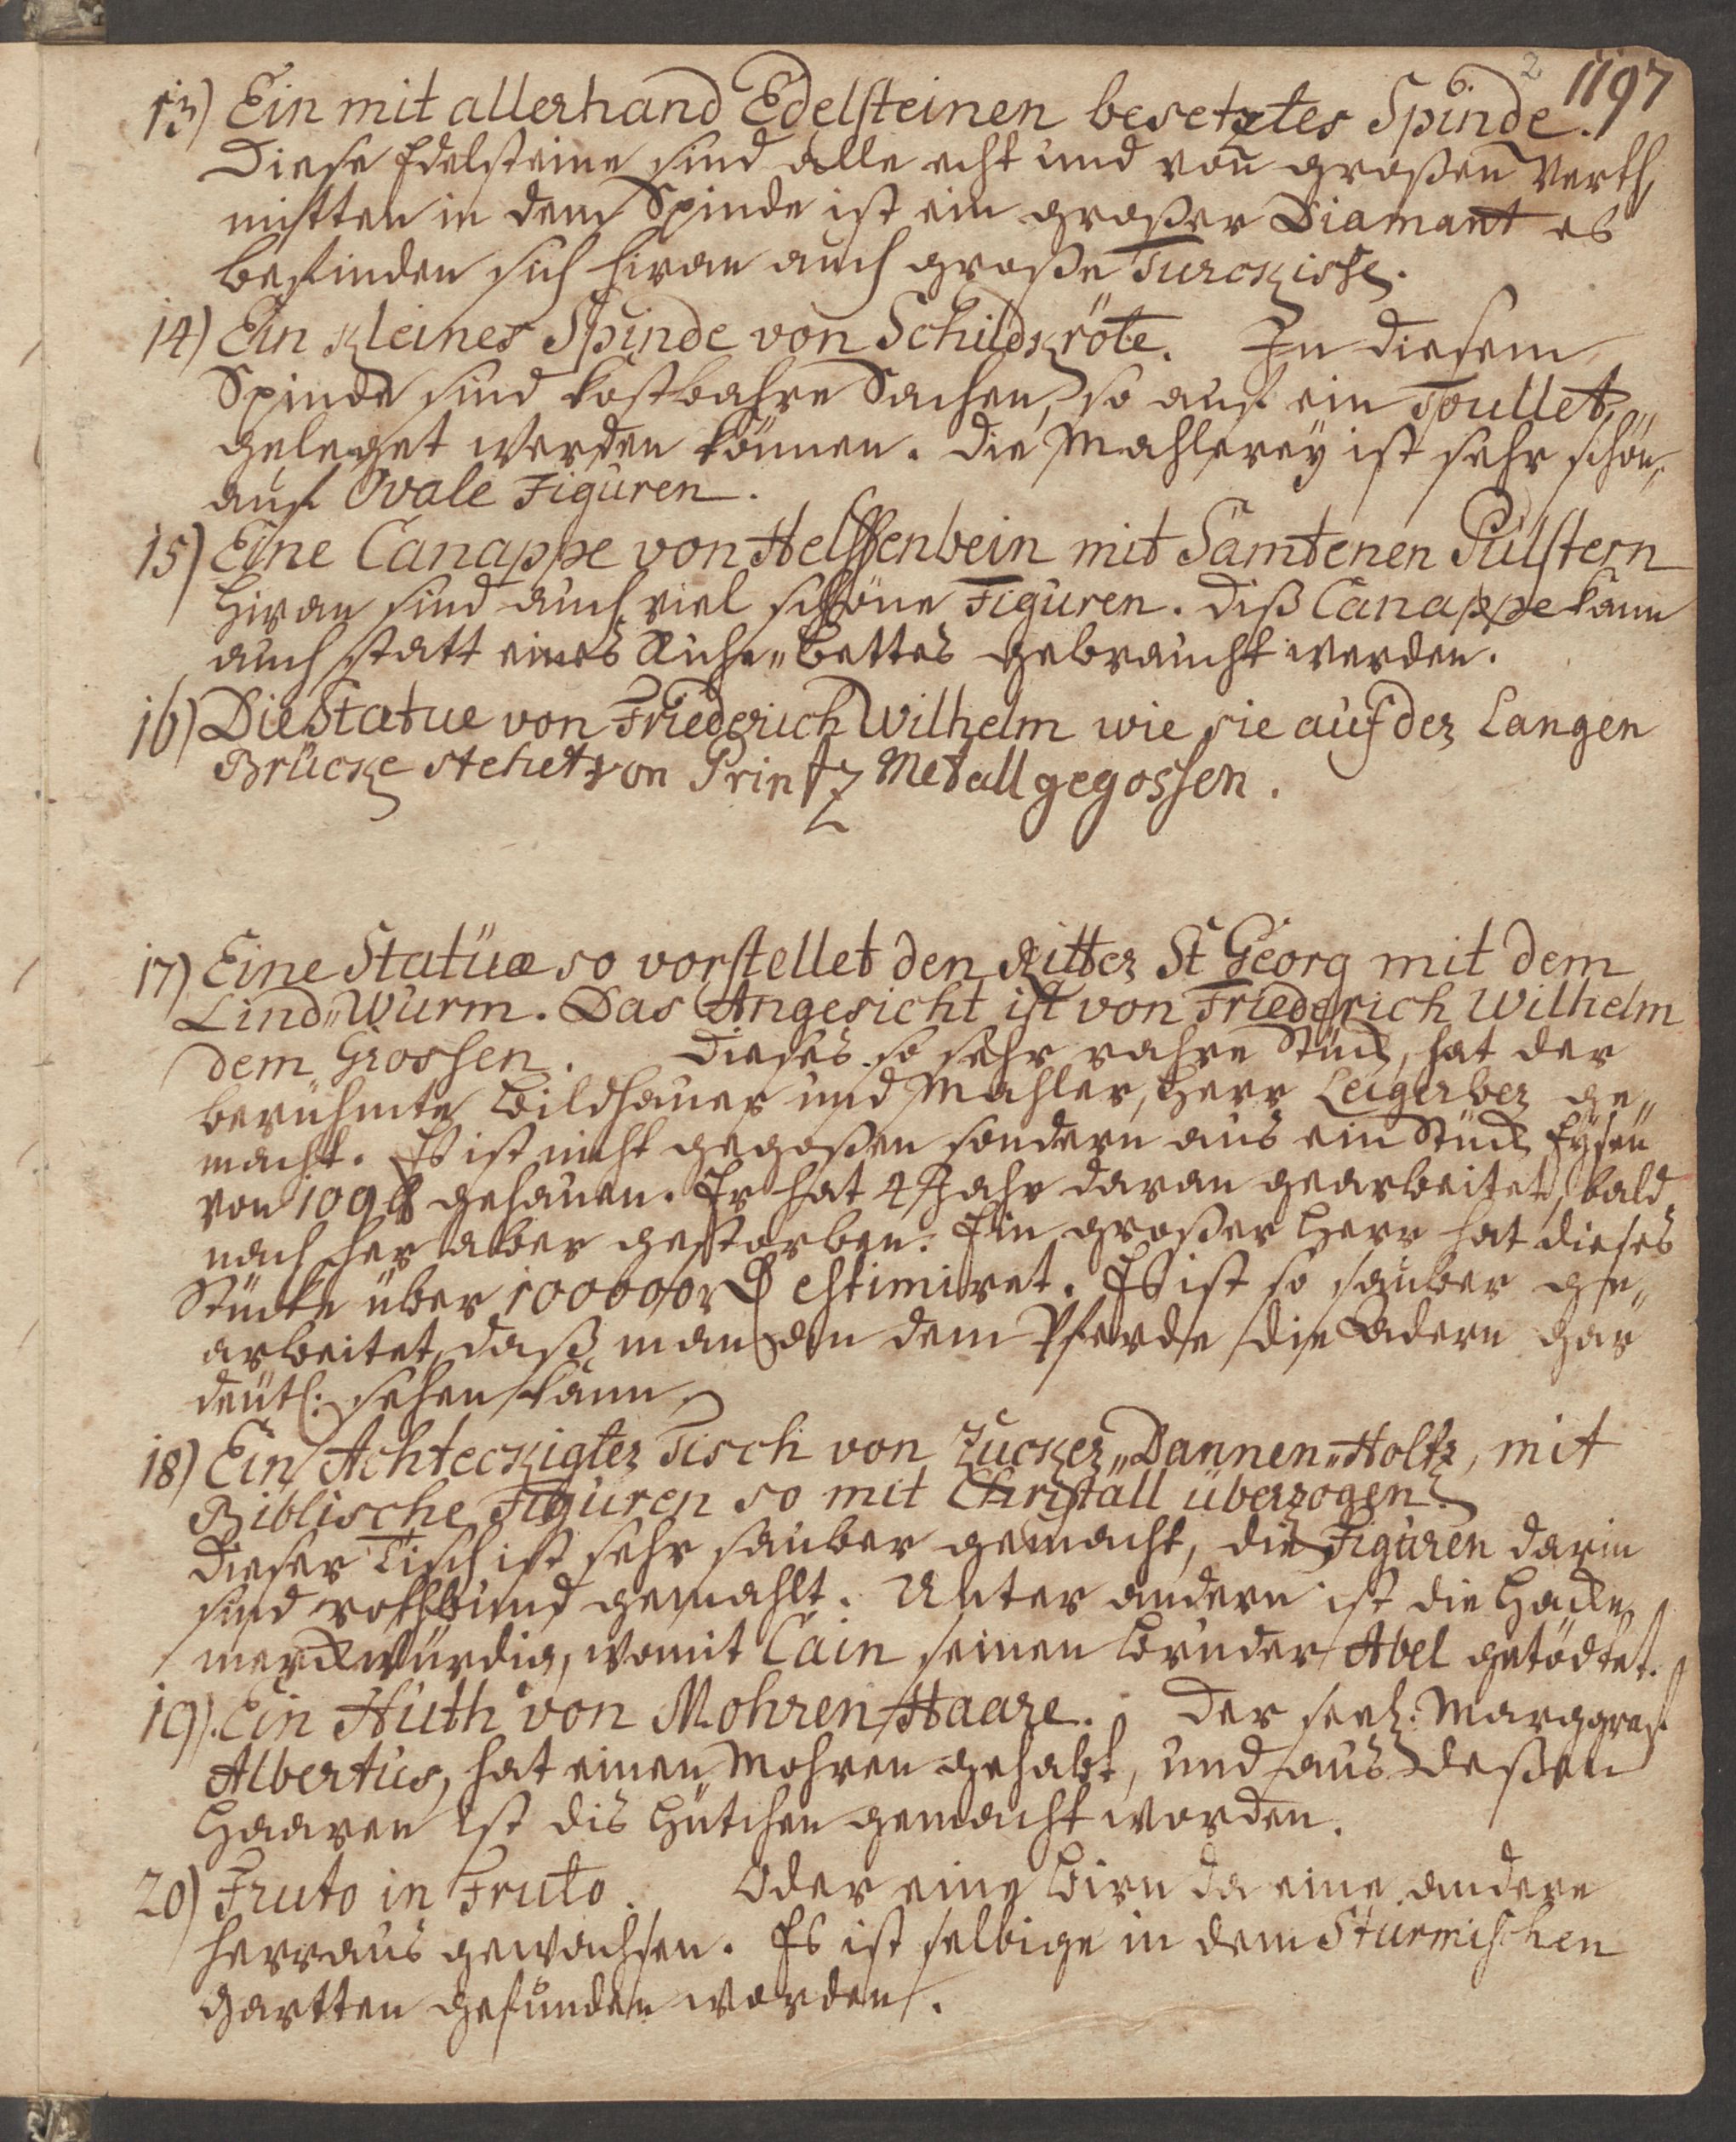 2 1197
13) Ein mit allerhand Edelsteinen besetztes Spinde.
Diese Edelsteine sind alle echt und von großen Werth,
mitten in dem Spinde ist ein großer Diamant es
befinden sich hiran auch große Turckisse.
14) Ein kleines Spinde von Schildkröte. In diesem
Spinde sind kostbahre Sachen, so auf ein Toullet,
geleget werden können. Die Mahlerey ist sehr schön,
auf Ovale Figuren.
15) Eine Canappe von Helffenbein mit Samtenen Pülstern
Hiran sind auch viel schöne Figuren. Diß Canappe kann
auch statt eines Ruhe„Bettes gebraucht werden.
16) Die Statue von Friederich Wilhelm wie sie auf der Langen
Brücke stehet von Printz Metall gegossen.
17) Eine Statüe so vorstellet den Ritter St Georg mit dem
Lind„Wurm. Das Angesicht ist von Friederich Wilhelm
dem Grossen. Dieses so sehr rahre Stück, hat der
berühmte Bildhauer und Mahler, Herr Leigerber ge„
macht. Es ist nicht gegoßen sondern aus ein Stück Eysen
von 109 ℔ gehauen. Er hat 4 Jahr daran gearbeitet, bald
nach her aber gestorben. Ein großer Herr hat dieses
Stücke über 100000 r estimiret. Es ist so sauber ge„
arbeitet, daß man an dem Pferde die Adern gar
deutl: sehen kann.
18) Ein Achteckigter Tisch von Zucker„Dannen„Holtz, mit
Biblische Figuren so mit Christall überzogen.
Dieser Tisch ist sehr sauber gemacht, die Figuren darin
sind rothbund gemahlt. Unter andern ist die Hacke
merckwürdig, womit Cain seinen Bruder Abel getödtet.
19). Ein Huth von Mohren Haare. Der seel: Marggraf
Albertus, hat einen Mohren gehabt, und aus deßen
Haaren ist dis Hütchen gemacht worden.
20) Fruto in Fruto. Oder eine Birn da eine andere
herraus gewachsen. Es ist selbige in dem Stürmischen
Gartten gefunden worden.